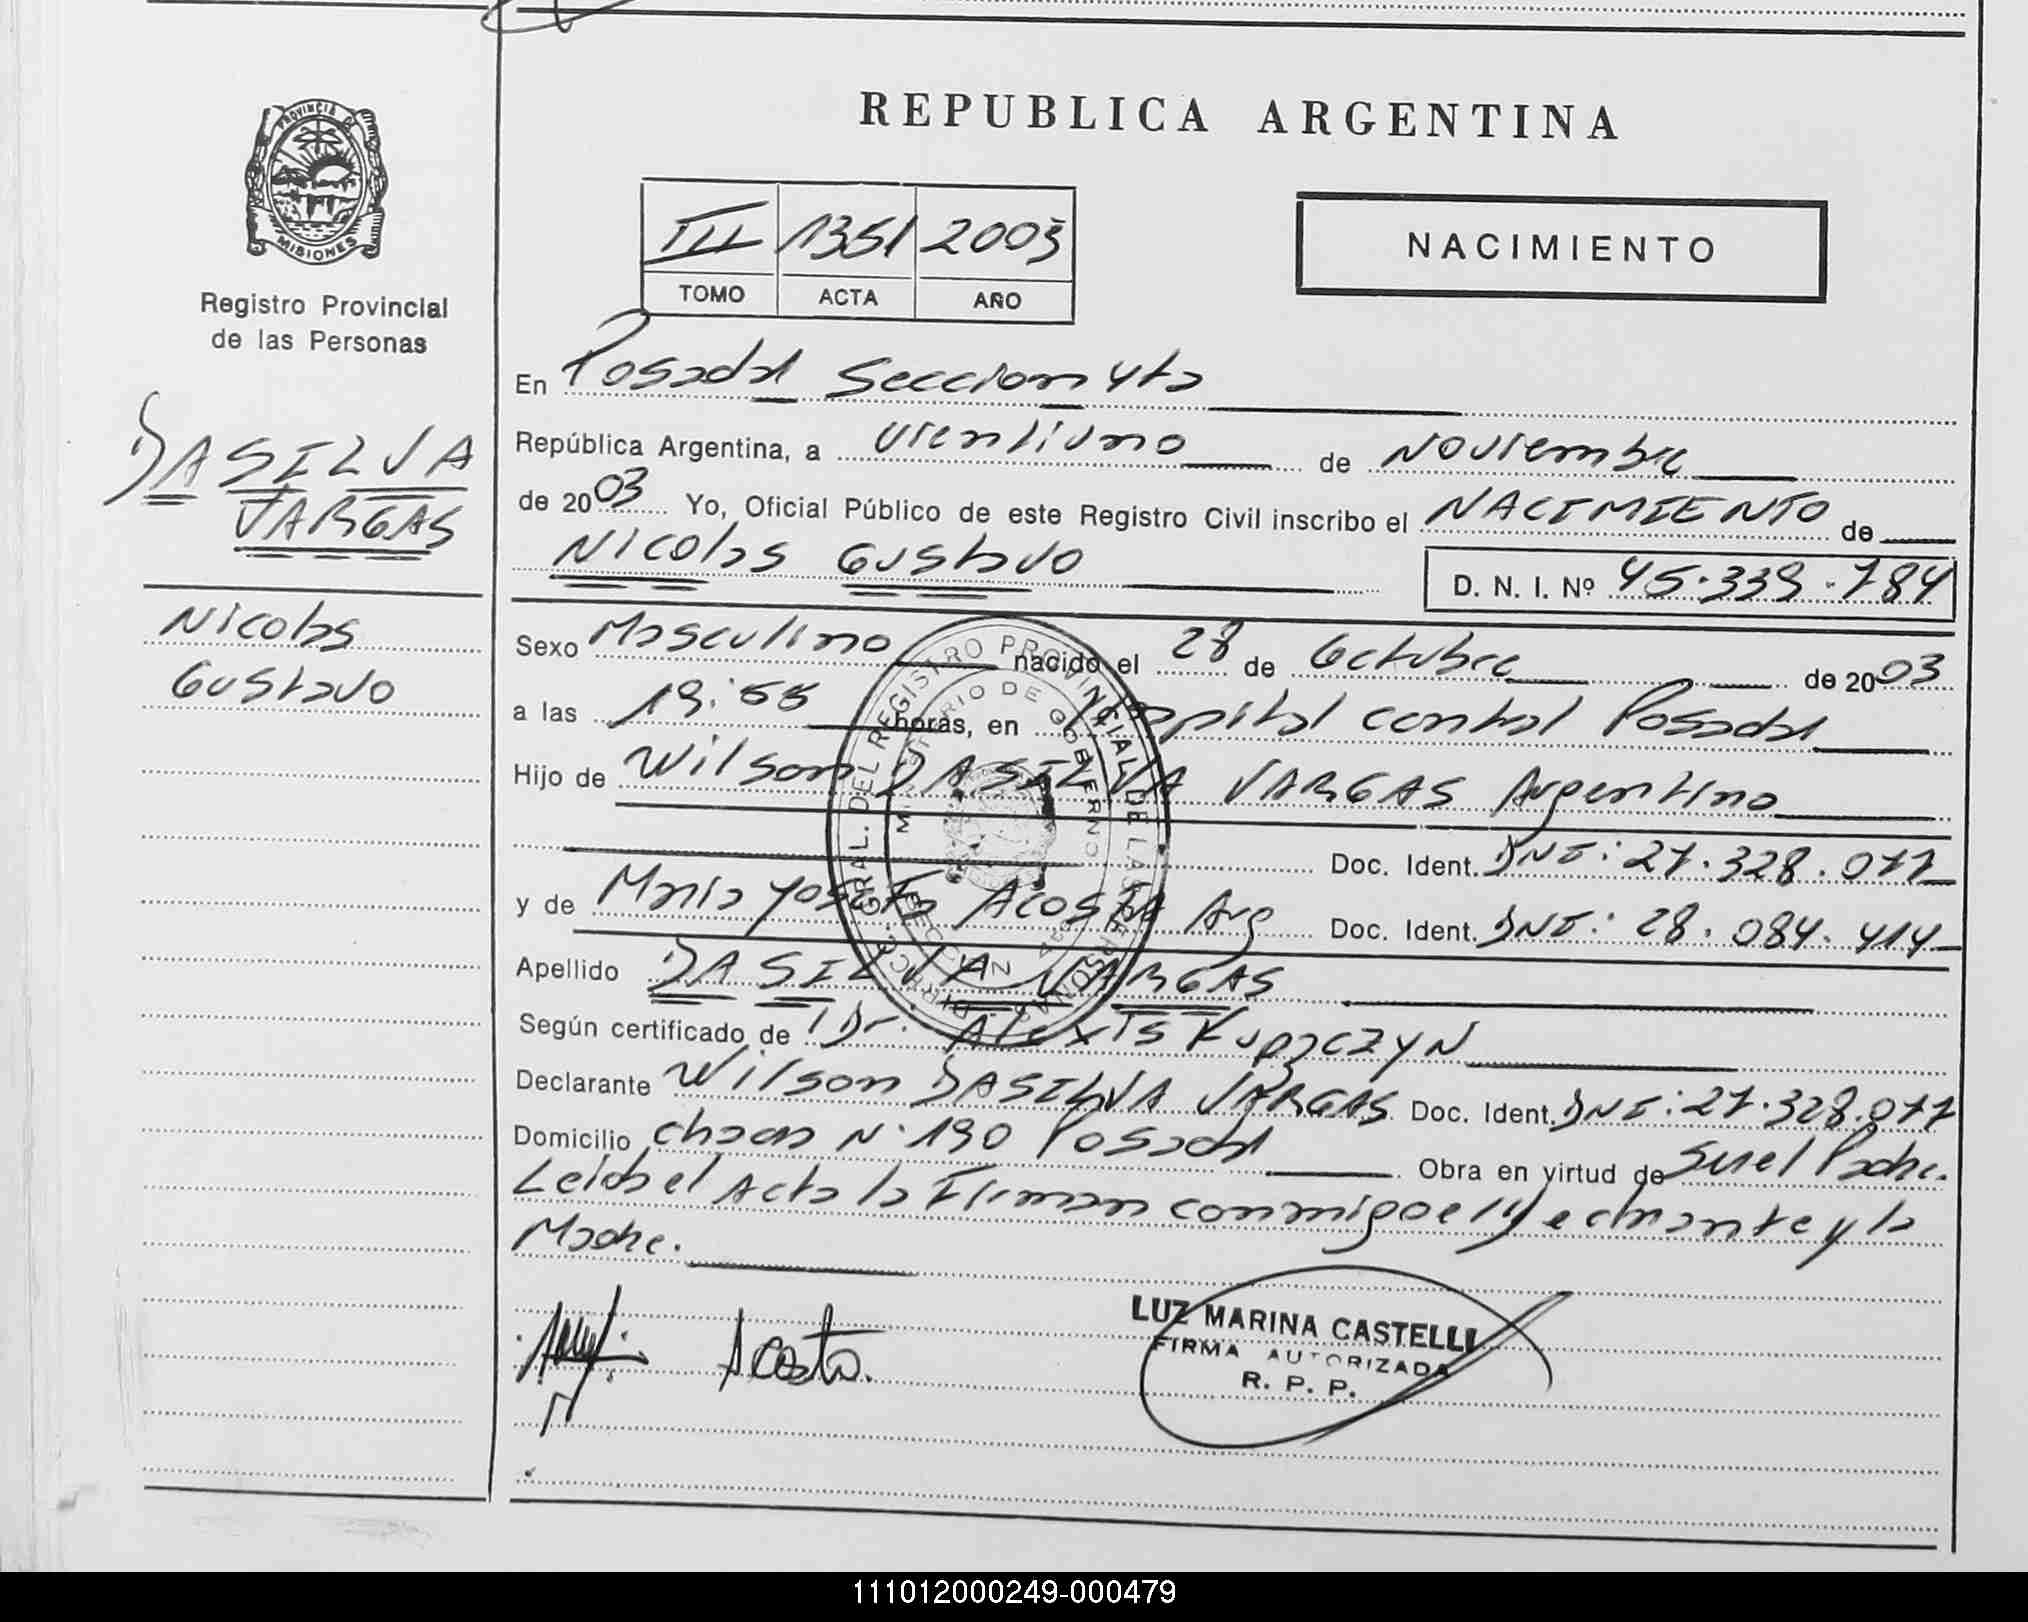 REPUBLICA ARGENTINA
PROVINCIA DE MISIONES
Registro Provincial
de las Personas
III 1351 2003
TOMO ACTA AÑO
NACIMIENTO
DASILVA
VARGAS
Nicolas
Gustavo
En Posadas Seccion 4ta
República Argentina, a veintiuno de Noviembre
de 2003 Yo, Oficial Público de este Registro Civil inscribo el NACIMIENTO de
Nicolas Gustavo D. N. I. Nº 45.339.784
Sexo Masculino nacido el 28 de Octubre de 2003
a las 19:55 horas, en Hospital central Posadas
Hijo de Wilson DASILVA VARGAS Argentino
Doc. Ident. DNI: 27.328.077
y de Maria Acosta Arg Doc. Ident. DNI: 28.084.414
Apellido DASILVA VARGAS
Según certificado de Dr. Alexis Kupzczyn
Declarante Wilson DASILVA VARGAS Doc. Ident. DNI: 27.328.077
Domicilio Chacra N° 190 Posadas Obra en virtud de Ser el Padre.
Leida el Acta la Firman conmigo el declarante y la
Madre.
Acosta.
LUZ MARINA CASTELLI
FIRMA AUTORIZADA
R. P. P.
111012000249-000479